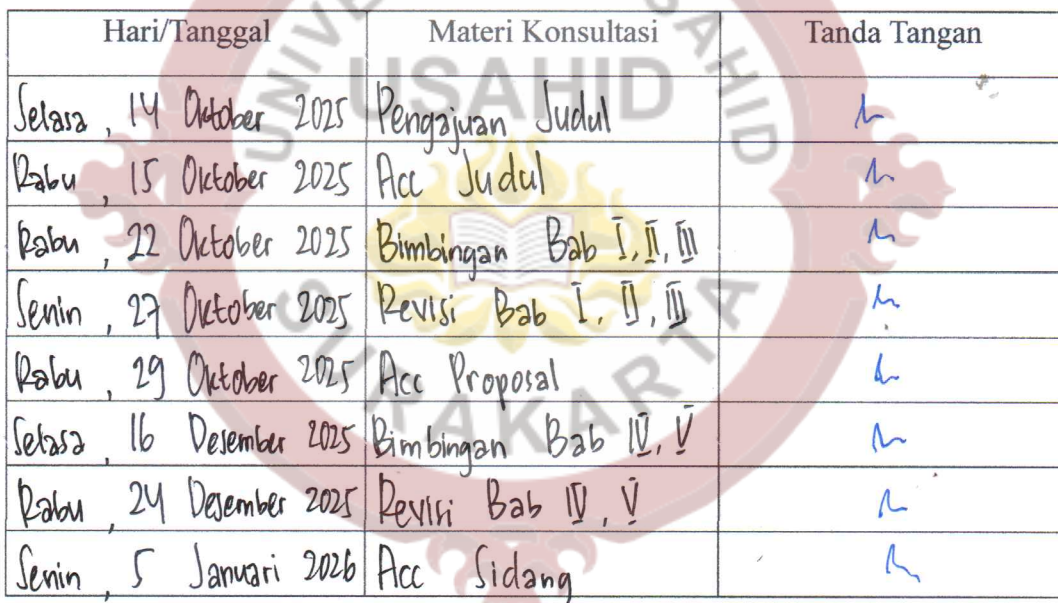 Hari/Tanggal Materi Konsultasi Tanda Tangan
Selasa, 14 Oktober 2025 Pengajuan Judul
Rabu, 15 Oktober 2025 Acc Judul
Rabu, 22 Oktober 2025 Bimbingan Bab I, II, III
Senin, 27 Oktober 2025 Revisi Bab I, II, III
Rabu, 29 Oktober 2025 Acc Proposal
Selasa, 16 Desember 2025 Bimbingan Bab IV, V
Rabu, 24 Desember 2025 Revisi Bab IV, V
Senin, 5 Januari 2026 Acc Sidang
USAHID
SURAKARTA